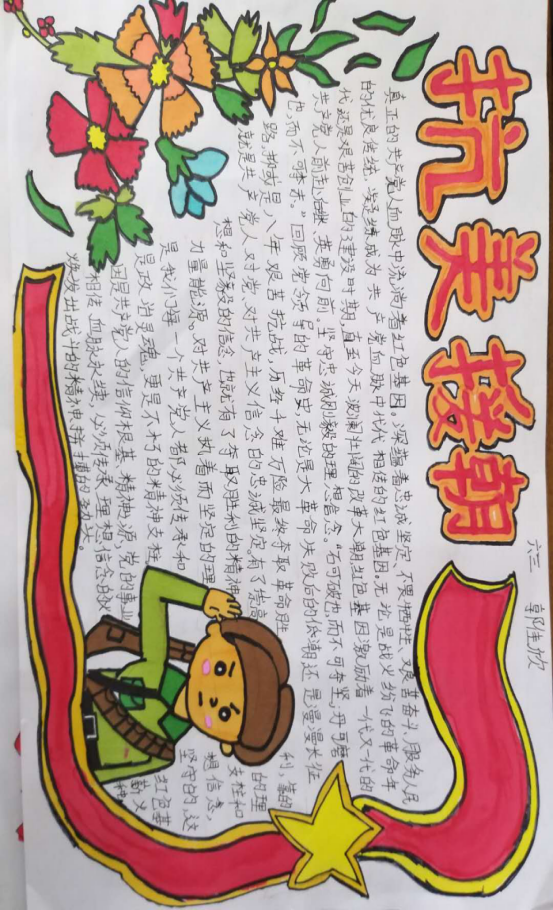 抗美援朝
六三 郭佳欣
真正的共产党人血脉中流淌着红色基因。深蕴着忠诚坚定、不畏牺牲、艰苦奋斗、服务人民
的优良传统,淬炼成为共产党血脉中代代相传的红色基因。无论是战火纷飞的革命年
代,还是艰苦创业的建设时期,直至今天波澜壮阔的改革大潮红色基因激励着一代又一代的
共产党人前赴后继、英勇向前。坚守忠诚刚毅的理想信念。“石可破也,而不可夺坚;丹可磨
也,而不可夺赤。”回顾党领导的革命史无论是大革命失败后的低潮还是漫漫长征
路,抑或是八年艰苦抗战,历经千难万险最终夺取革命胜利,靠的
就是共产党人对党、对共产主义信念的忠诚坚定。有了崇高的理
想和坚毅的信念,也就有了夺取胜利的精神支柱和
力量能源。对共产主义执着而坚定的理想信念,
是我们每一个共产党人都必须传承和坚守的,这
是政治灵魂,更是不朽的精神支柱。红色基
因是共产党人的信仰根基、精神源,党的事业薪火
相传、血脉永续,必须传承理想信念的火种,
焕发出战斗的精神,拼搏的